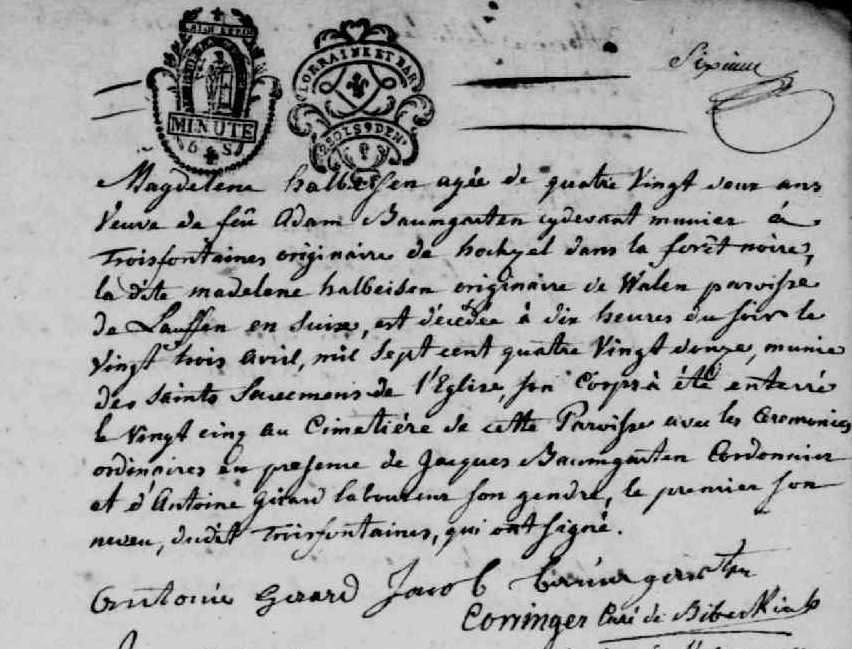 LORRAINE ET BAR
MINUTE
2 SOLS 9 DEN.
Sixieme
Magdelene halbeisen agée de quatre Vingt deux ans
Veuve de feû Adam Baumgarten cydevant munier à
Troisfontaines originaire de hochyel dans la forêt noire,
la dite madelene halbeisen originaire de Walen paroisse
de Lauffen en Suize, est décédée à dix heures du soir le
Vingt trois avril, mil sept cent quatre Vingt donze, munie
des saints Sacremens de l'Eglise, son Corps à été enterré
le Vingt cinq au Cimetiére de cette Paroisse avec les Ceremonies
ordinaires en presence de Jacques Baumgarten Cordonnier
et d'Antoine Girard laboureur son gendre, le premier son
neveu, dudit Troisfontaines, qui ont signé.
Antoine Gerard Jacob
Corringer Curé de Biberkirch